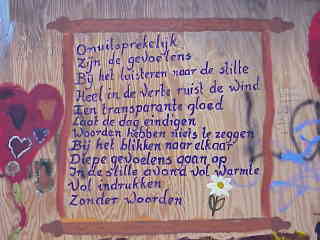 Onuitsprekelijk
Zijn de gevoelens
Bij het luisteren naar de stilte
Heel in de verte ruist de wind
Een transparante gloed
Laat de dag eindigen
Woorden hebben niets te zeggen
Bij het blikken naar elkaar
Diepe gevoelens gaan op
In de stille avond vol warmte
Vol indrukken
Zonder woorden